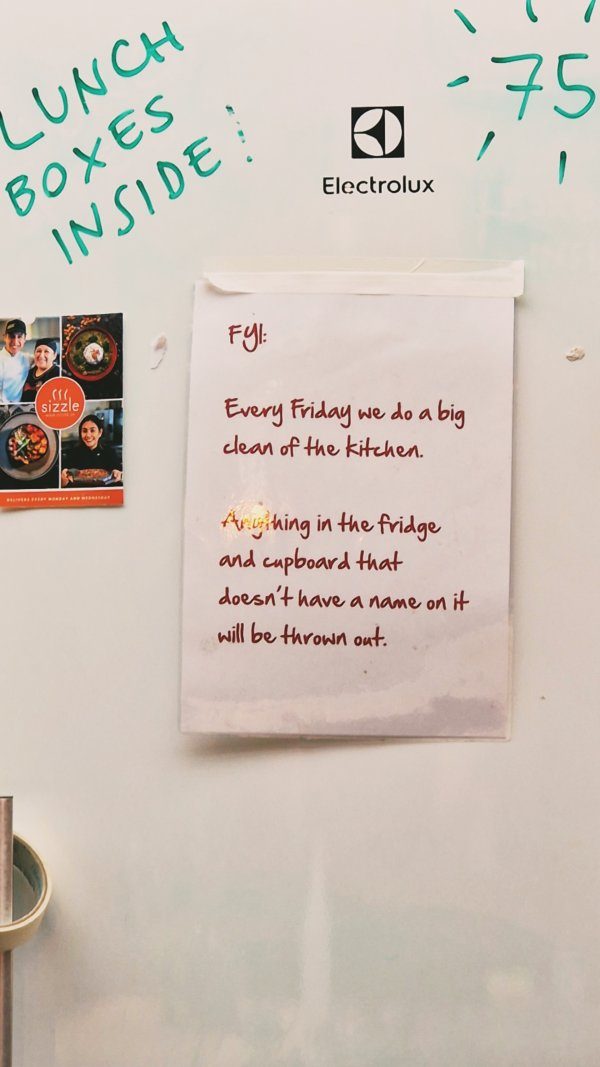 LUNCH
BOXES
INSIDE!
75
Electrolux
FYI:
Every Friday we do a big
clean of the kitchen.
Anything in the fridge
and cupboard that
doesn't have a name on it
will be thrown out.
sizzle
DELIVERS EVERY MONDAY AND WEDNESDAY